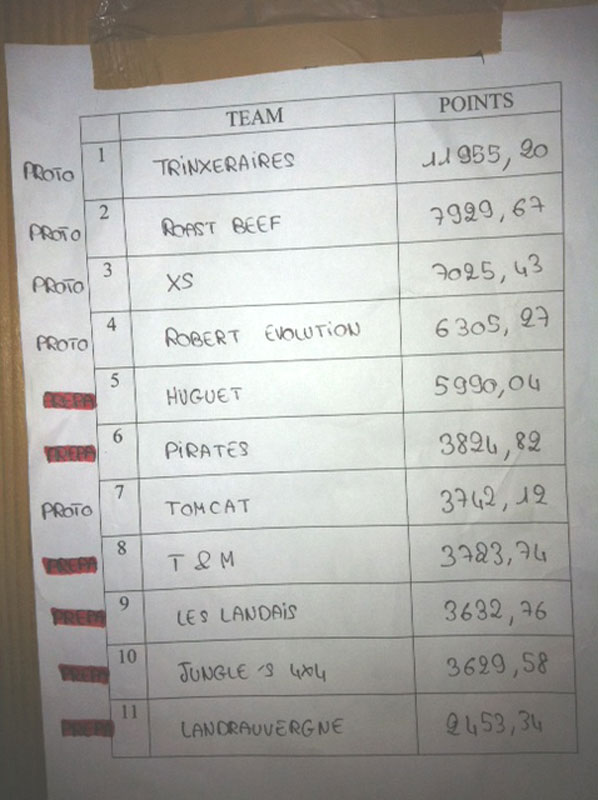 TEAM POINTS
PROTO 1 TRINXERAIRES 11955,20
PROTO 2 ROAST BEEF 7929,67
PROTO 3 XS 7025,43
PROTO 4 ROBERT EVOLUTION 6305,27
PREPA 5 HUGUET 5990,04
PREPA 6 PIRATES 3824,82
PROTO 7 TOMCAT 3742,12
PREPA 8 T & M 3723,74
PREPA 9 LES LANDAIS 3632,76
PREPA 10 JUNGLE'S 4x4 3629,58
PREPA 11 LANDRAUVERGNE 2453,34